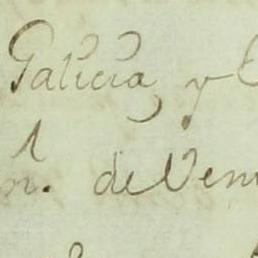 Galicia, y
de Ven